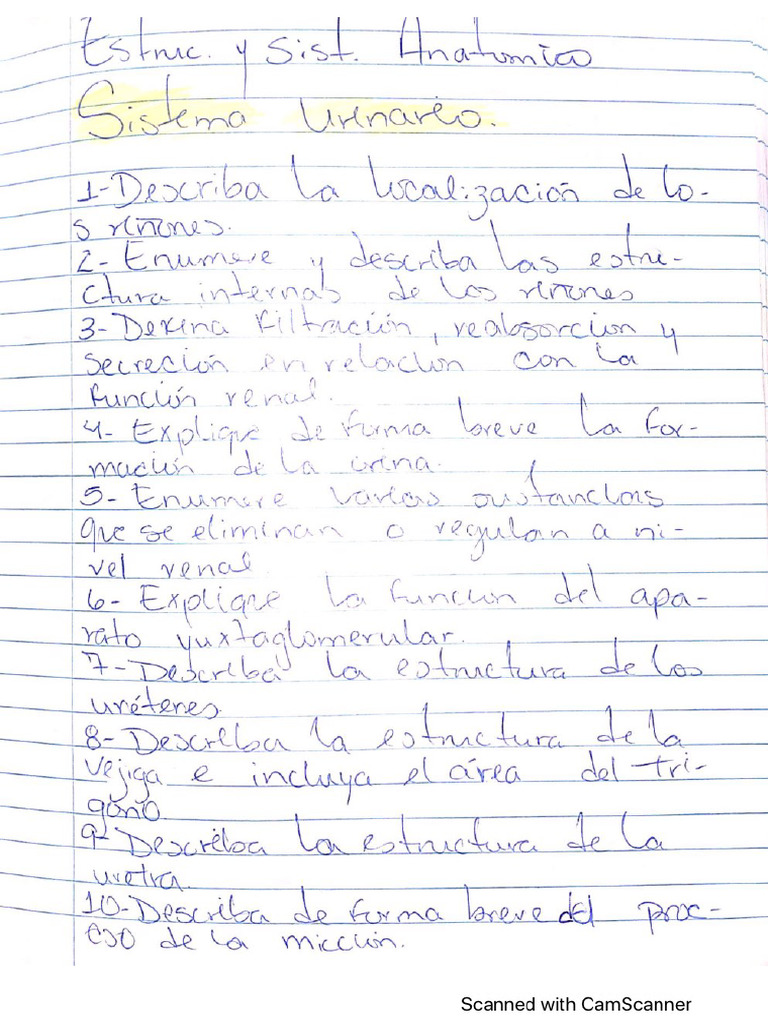 Estruc. y Sist. Anatomico
Sistema Urinareo.
1-Describa la localización de lo-
s riñones.
2- Enumere y describa las estru-
ctura internas de los riñones
3- Defina filtración, reabsorcion y
secreción en relación con la
función renal.
4- Explique de forma breve la for-
mación de la orina.
5- Enumere varias sustancias
que se eliminan o regulan a ni-
vel renal
6- Explique la función del apa-
rato yuxtaglomerular.
7- Describa la estructura de los
uréteres
8- Describa la estructura de la
vejiga e incluya el área del tri-
gono
9- Describa la estructura de la
uretra.
10-Describa de forma breve del proc-
eso de la micción.
Scanned with CamScanner